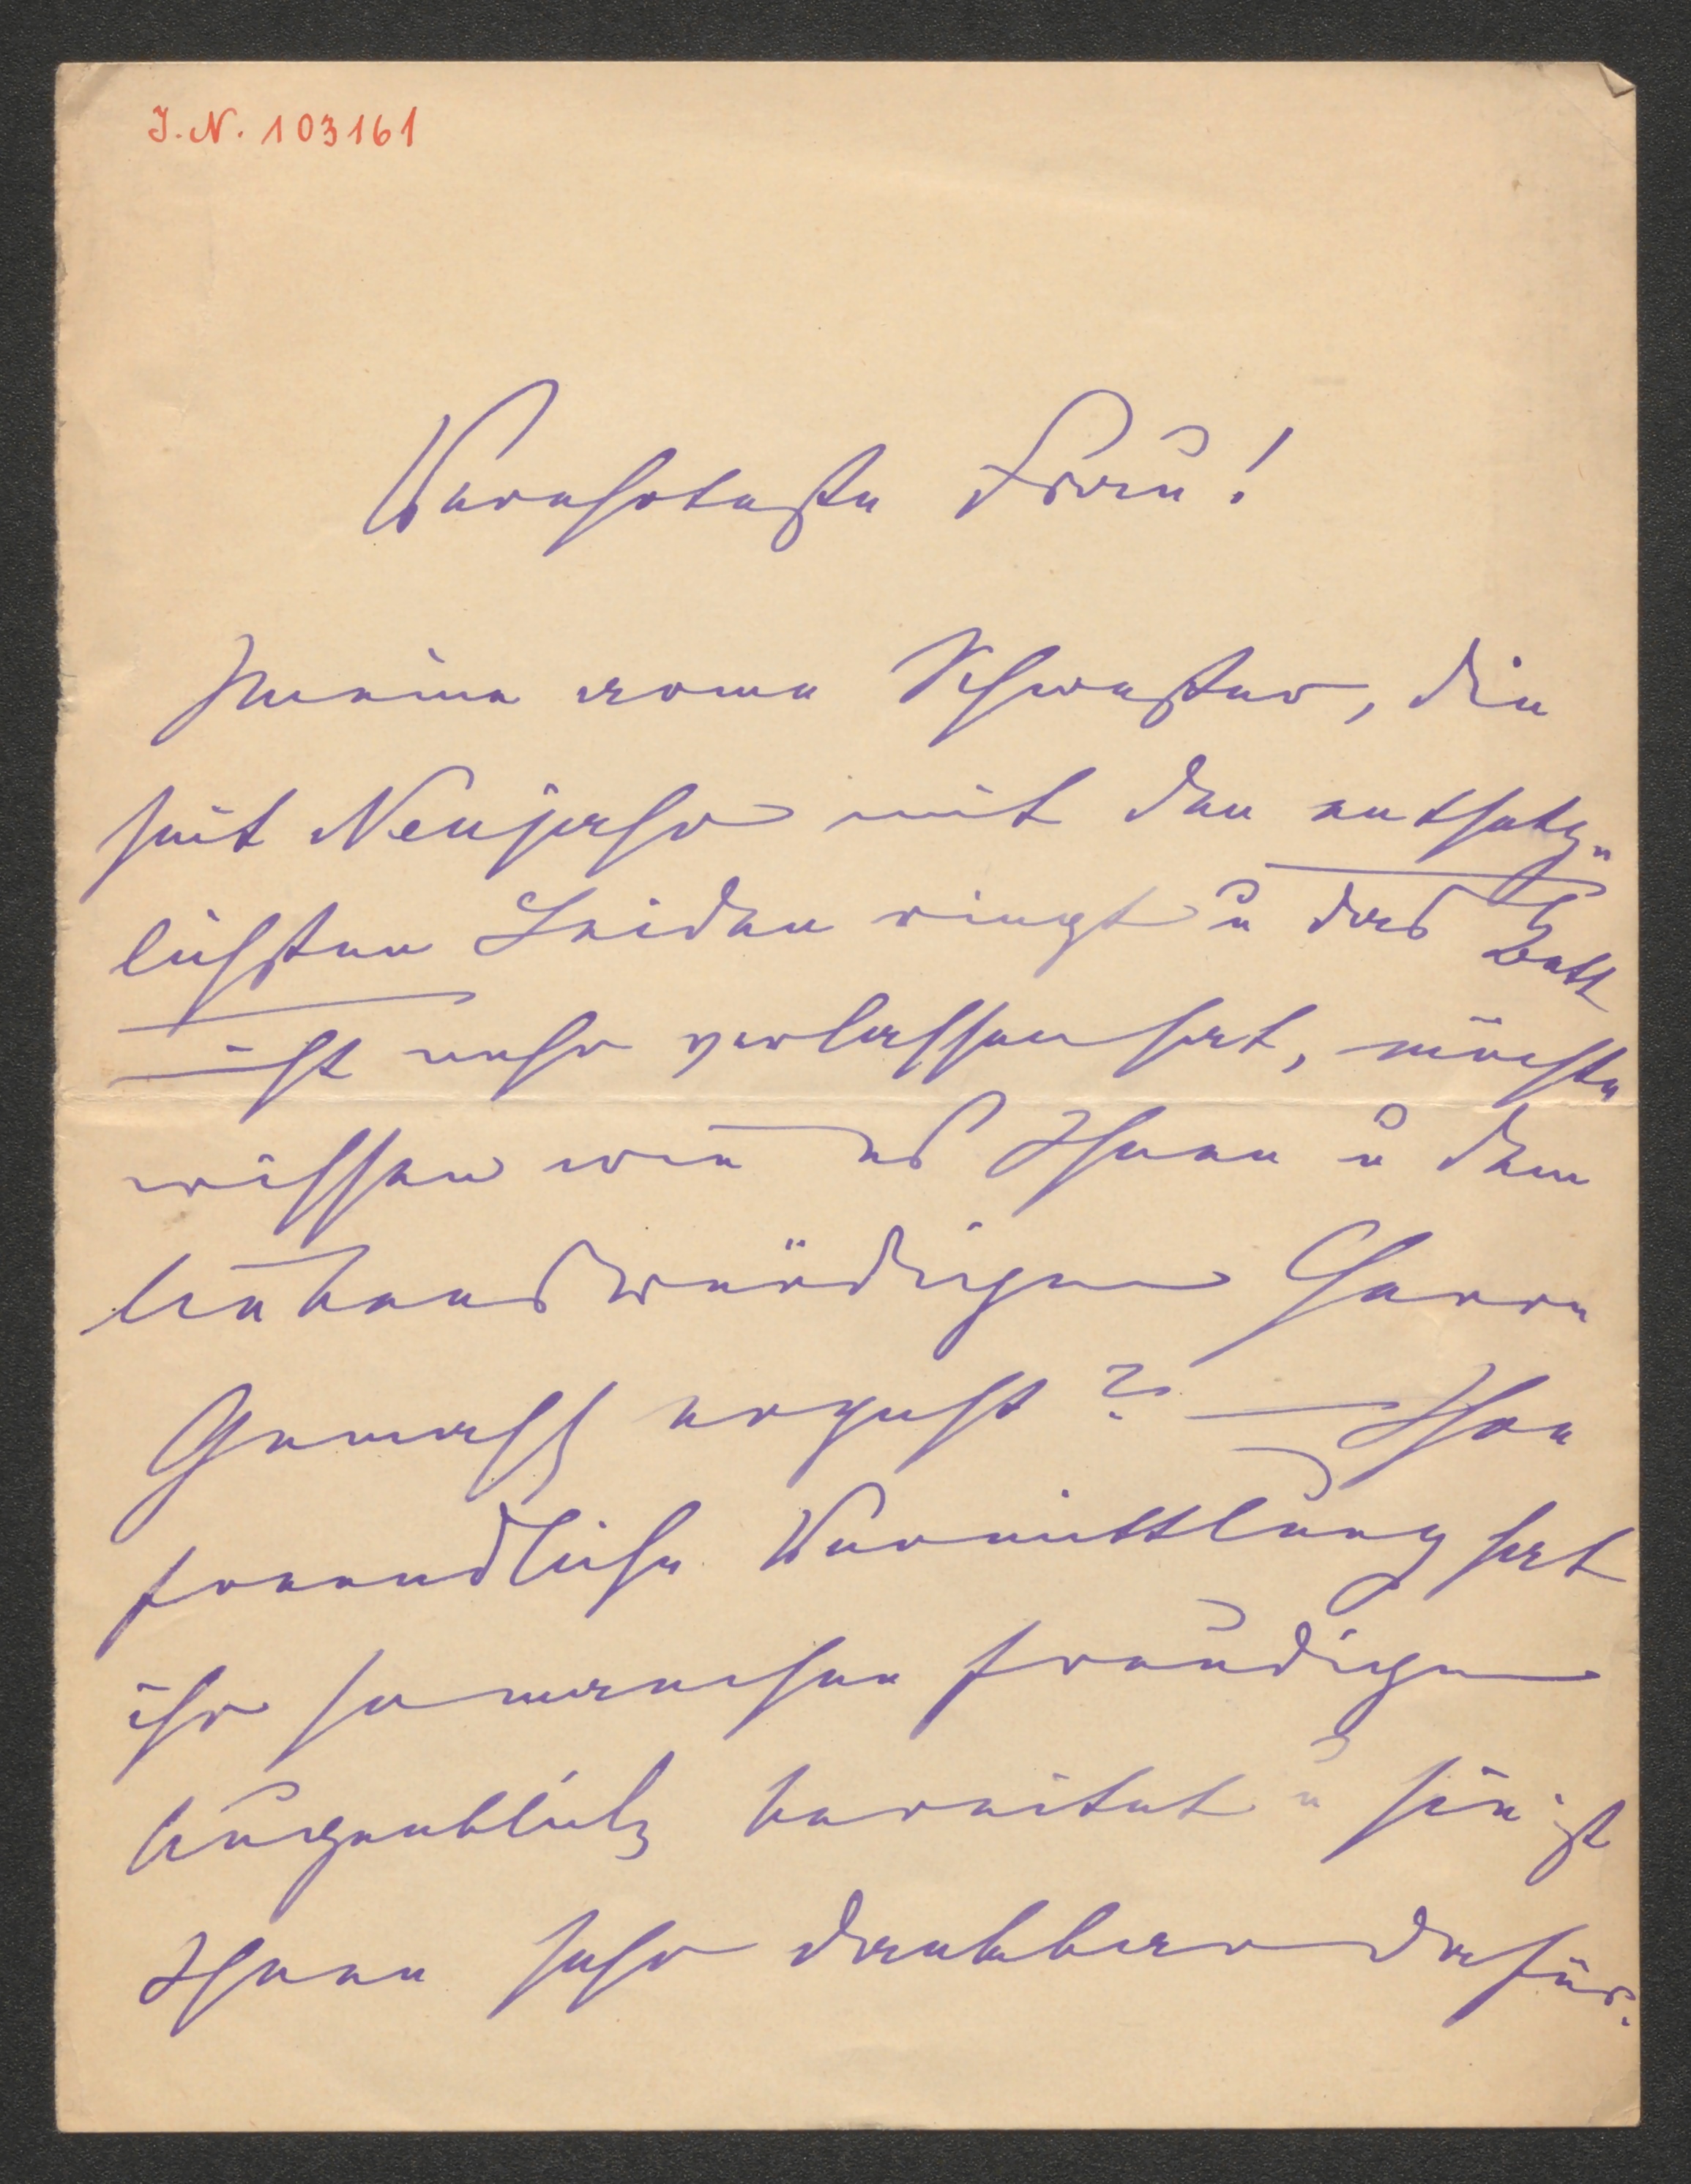 J. N. 103161
Verehrteste Frau!
Meine arme Schwester, die
seit Neujahr mit den entsetz-
lichsten Leiden ringt u das Bett
nicht mehr verlassen hat, möchte
wissen wie es Ihnen u dem
liebenswürdigen Herrn
Gemahl ergeht? — Ihre
freundliche Vermittlung hat
ihr so manchen freudigen
Augenblick bereitet u sie ist
Ihnen sehr dankbar dafür.